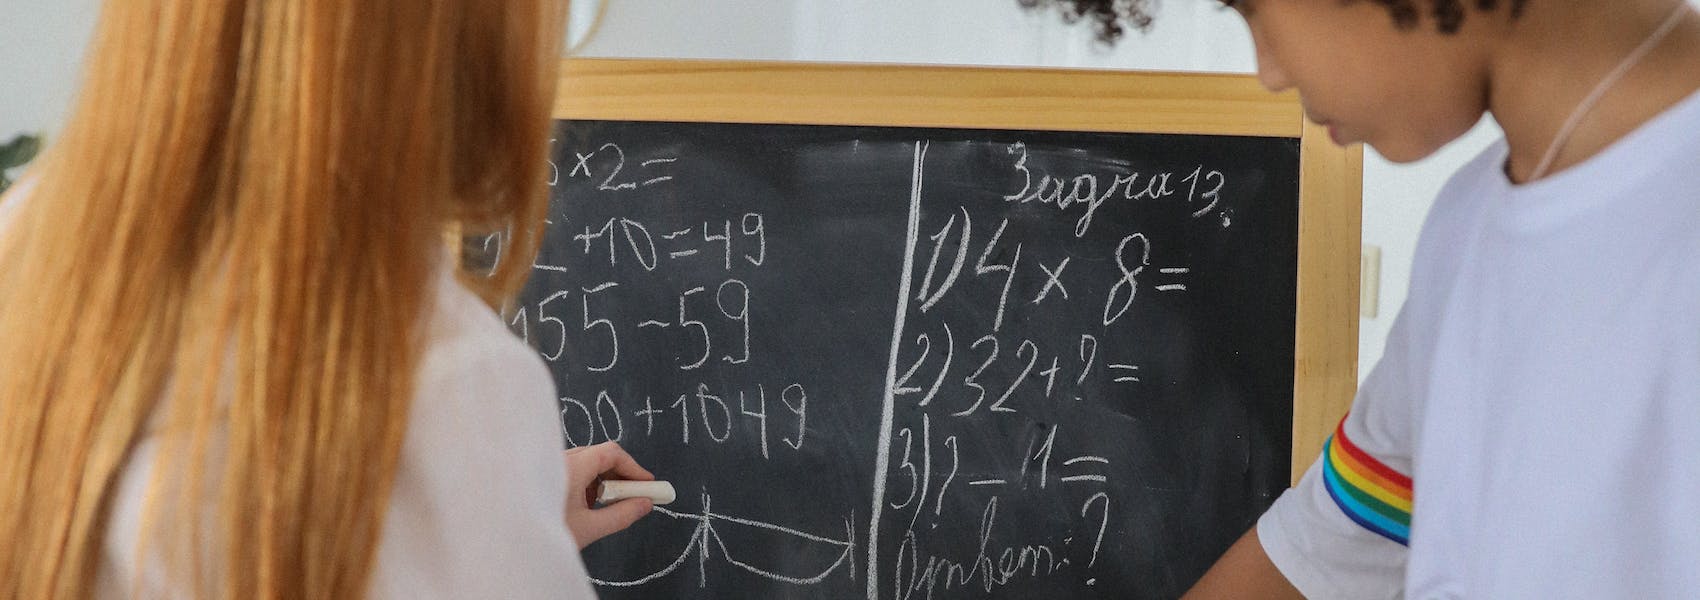 5×2=
+10=49
155-59
00+1049
Задача 13.
1) 4 × 8=
2) 32+? =
3) ? - 11 =
Ответ: ?